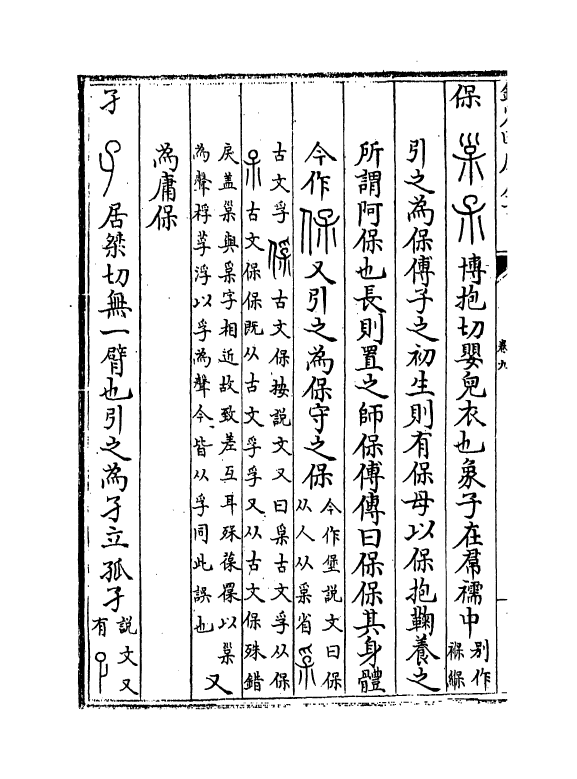 卷九
保 博抱切嬰兒衣也象子在帬襦中
別作
褓緥
引之為保傅子之初生則有保母以保抱鞠養之
所謂阿保也長則置之師保傅傅曰保保其身體
今作保又引之為保守之保
今作堡說文曰保
从人从𤓽省
古文孚 古文保按說文又曰𤓽古文孚从保
古文保保既从古文孚孚又从古文保殊錯
戾盖與𤓽字相近故致差互耳殊葆以
為聲稃莩浮以孚為聲今皆从孚同此誤也
又
為庸保
孑 居桀切無一臂也引之為孑立孤孑
說文又
有